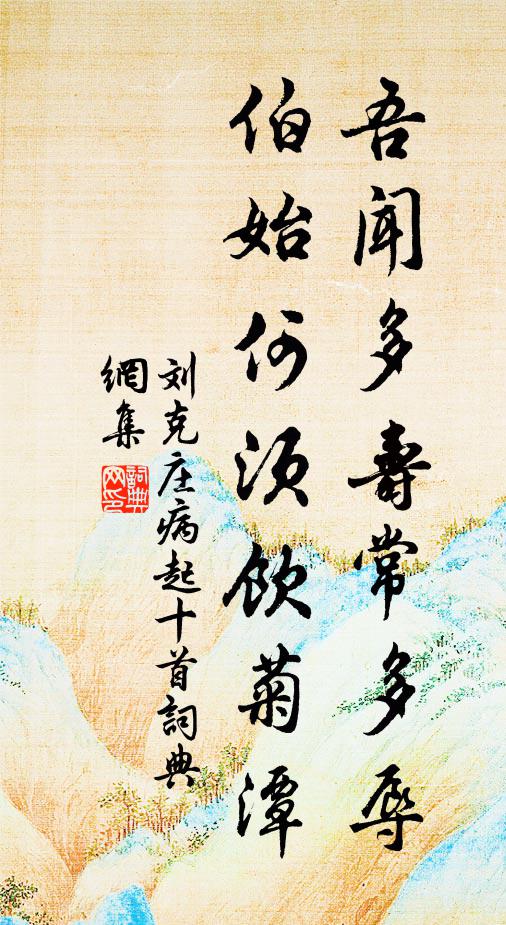 吾闻多寿常多辱
伯始何须饮菊潭
刘克庄病起十首詞典
網集
詞典网印